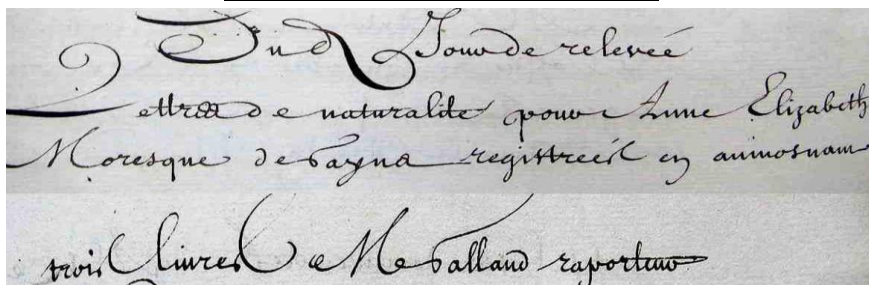 Dud Jour de relevée
Lettres de naturalité pour Anne Elizabeth
Moresque de payna registreés en aumosnant
trois livres a Me Palland raporteur